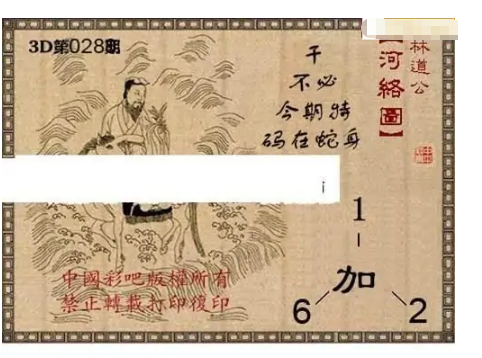 3D第028期
林道公
【河络圖】
干
不必
今期特
码在蛇身
1
加
6
2
中國彩吧版權所有
禁止轉裁打印復印